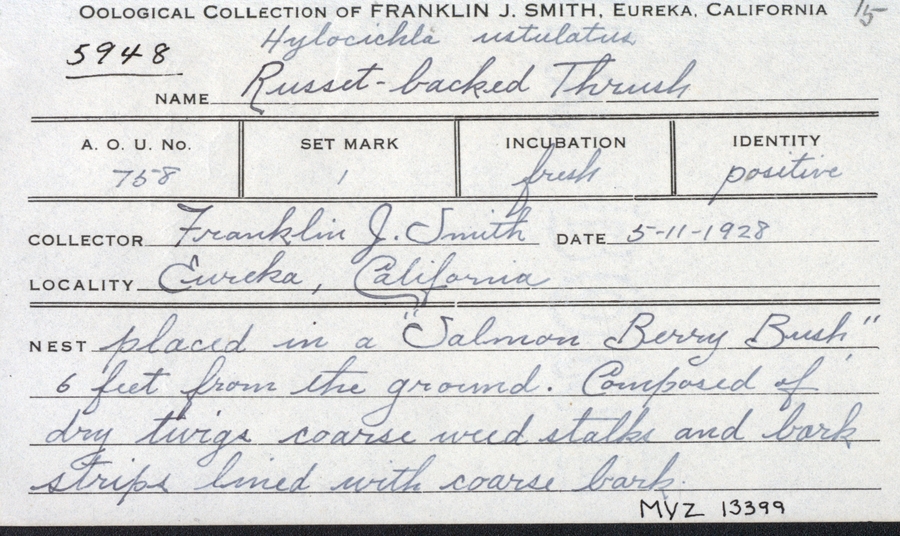 OOLOGICAL COLLECTION OF FRANKLIN J. SMITH, EUREKA, CALIFORNIA 15
Hylocichla ustulatus
5948
NAME Russet-backed Thrush
A. O. U. No. SET MARK INCUBATION IDENTITY
758 1 fresh positive
COLLECTOR Franklin J. Smith DATE 5-11-1928
LOCALITY Eureka, California
NEST placed in a "Salmon Berry Bush"
6 feet from the ground. Composed of
dry twigs coarse weed stalks and bark
strips lined with coarse bark.
MVZ 13399